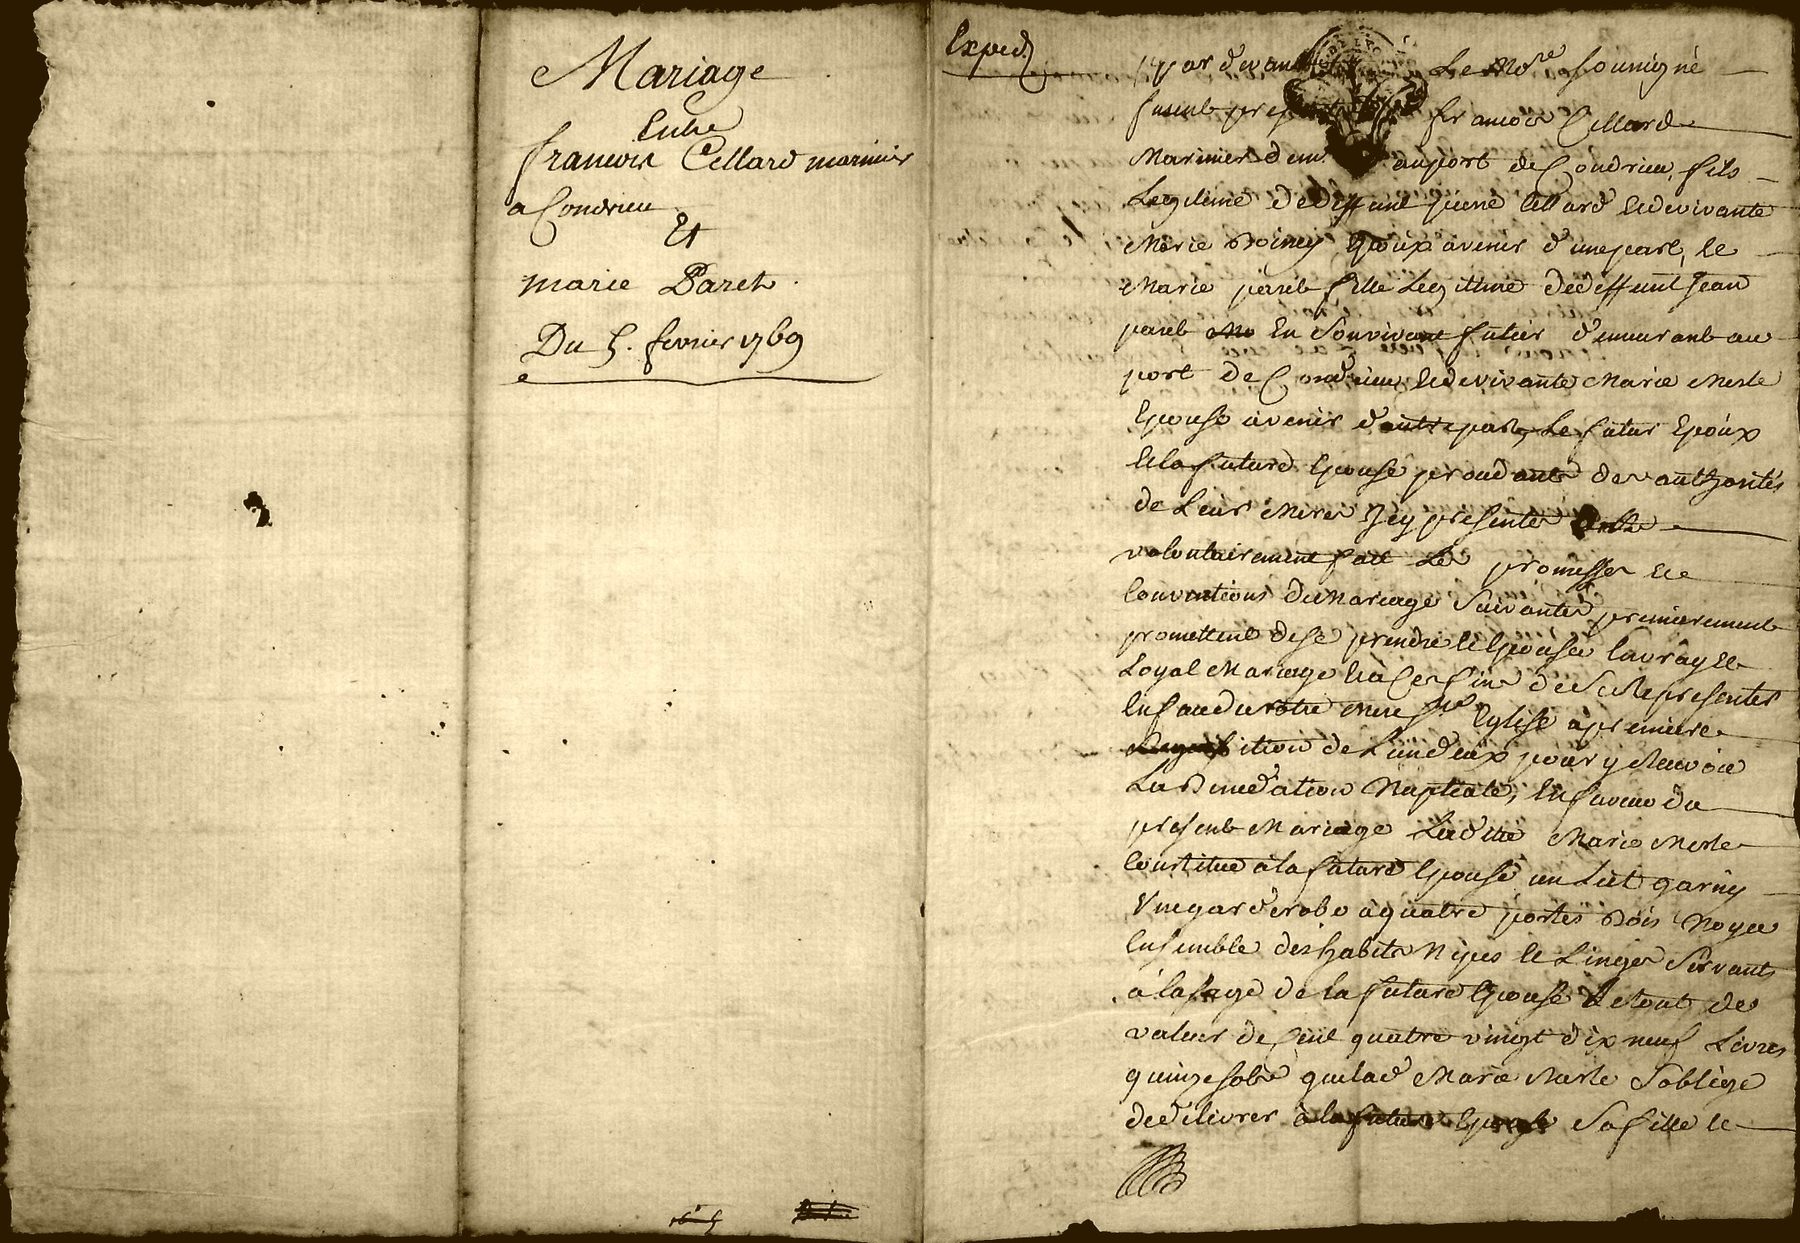 Mariage
Entre
francois Cellard marinier
a Condrieu
Et
marie Paret
Du 5. fevrier 1769
Exped
par devant Le No.re soussigné
furent pres francois Cellard
Marinier dem. au port de Condrieu, fils
Legitime de deffunt pierre Cellard et de vivante
Marie Epoux avenir d'une part, et
Marie paret fille Legitime de deffunt Jean
paret en son vivant futier demeurant au
port de Condrieu, et de vivante Marie Merle
Epouse avenir d'autre part, Le futur Epoux
et la future Epouse des authorites
de Leurs Meres Icy presentes
volontairement fait Les promesses et
Conventions du Mariage Suivantes premierement
promettent de se prendre et Epouser en vray et
Loyal Mariage et a Ces fins de se Representer
En face de notre Mere S.te Eglise a premiere
Requisition de L'un d'eux pour y Recevoir
La Benediction Nuptiale, En faveur du
present Mariage Laditte Marie Merle
Constitue à la future Epouse un Lict garny
Une garderobe à quatre portes Bois Noyer
Ensemble des habits Nipes et Linges Servants
à l'usage de la future Epouse Le tout de
valeur de Cent quatre vingt dix neuf Livres
quinze sols que lad Marie Merle S'oblige
de delivrer à la future Epouse Sa fille le